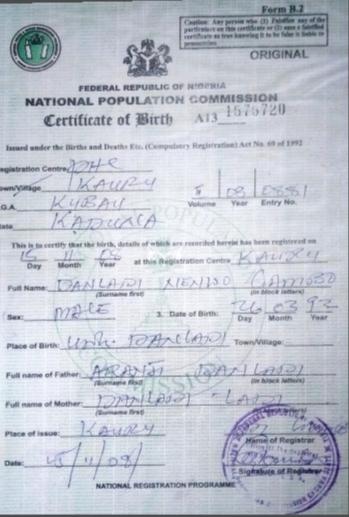 Form B.2
Caution: Any person who (1) Falsifies any of the particulars on this certificate or (2) uses a falsified certificate as true knowing it to be false is liable to prosecution.
ORIGINAL
FEDERAL REPUBLIC OF NIGERIA
NATIONAL POPULATION COMMISSION
Certificate of Birth A13 1575720
Issued under the Births and Deaths Etc. (Compulsory Registration) Act No. 69 of 1992
Registration Centre PHC
Town/Village KAURU
V 08 0881
L.G.A. KUBAU Volume Year Entry No.
State KADUNA
This is to certify that the birth, details of which are recorded herein has been registered on
15 11 08 at this Registration Centre KAURU
Day Month Year
Full Name: DANLADI
(Surname first) (in block letters)
Sex: MALE 3. Date of Birth: 26 03 92
Day Month Year
Place of Birth: DANLADI Town/Village:
Full name of Father: DANLADI
(Surname first) (in block letters)
Full name of Mother: DANLADI LADI
(Surname first)
Place of issue: KAURU
Name of Registrar
Date: 15/11/08
Signature of Registrar
NATIONAL REGISTRATION PROGRAMME